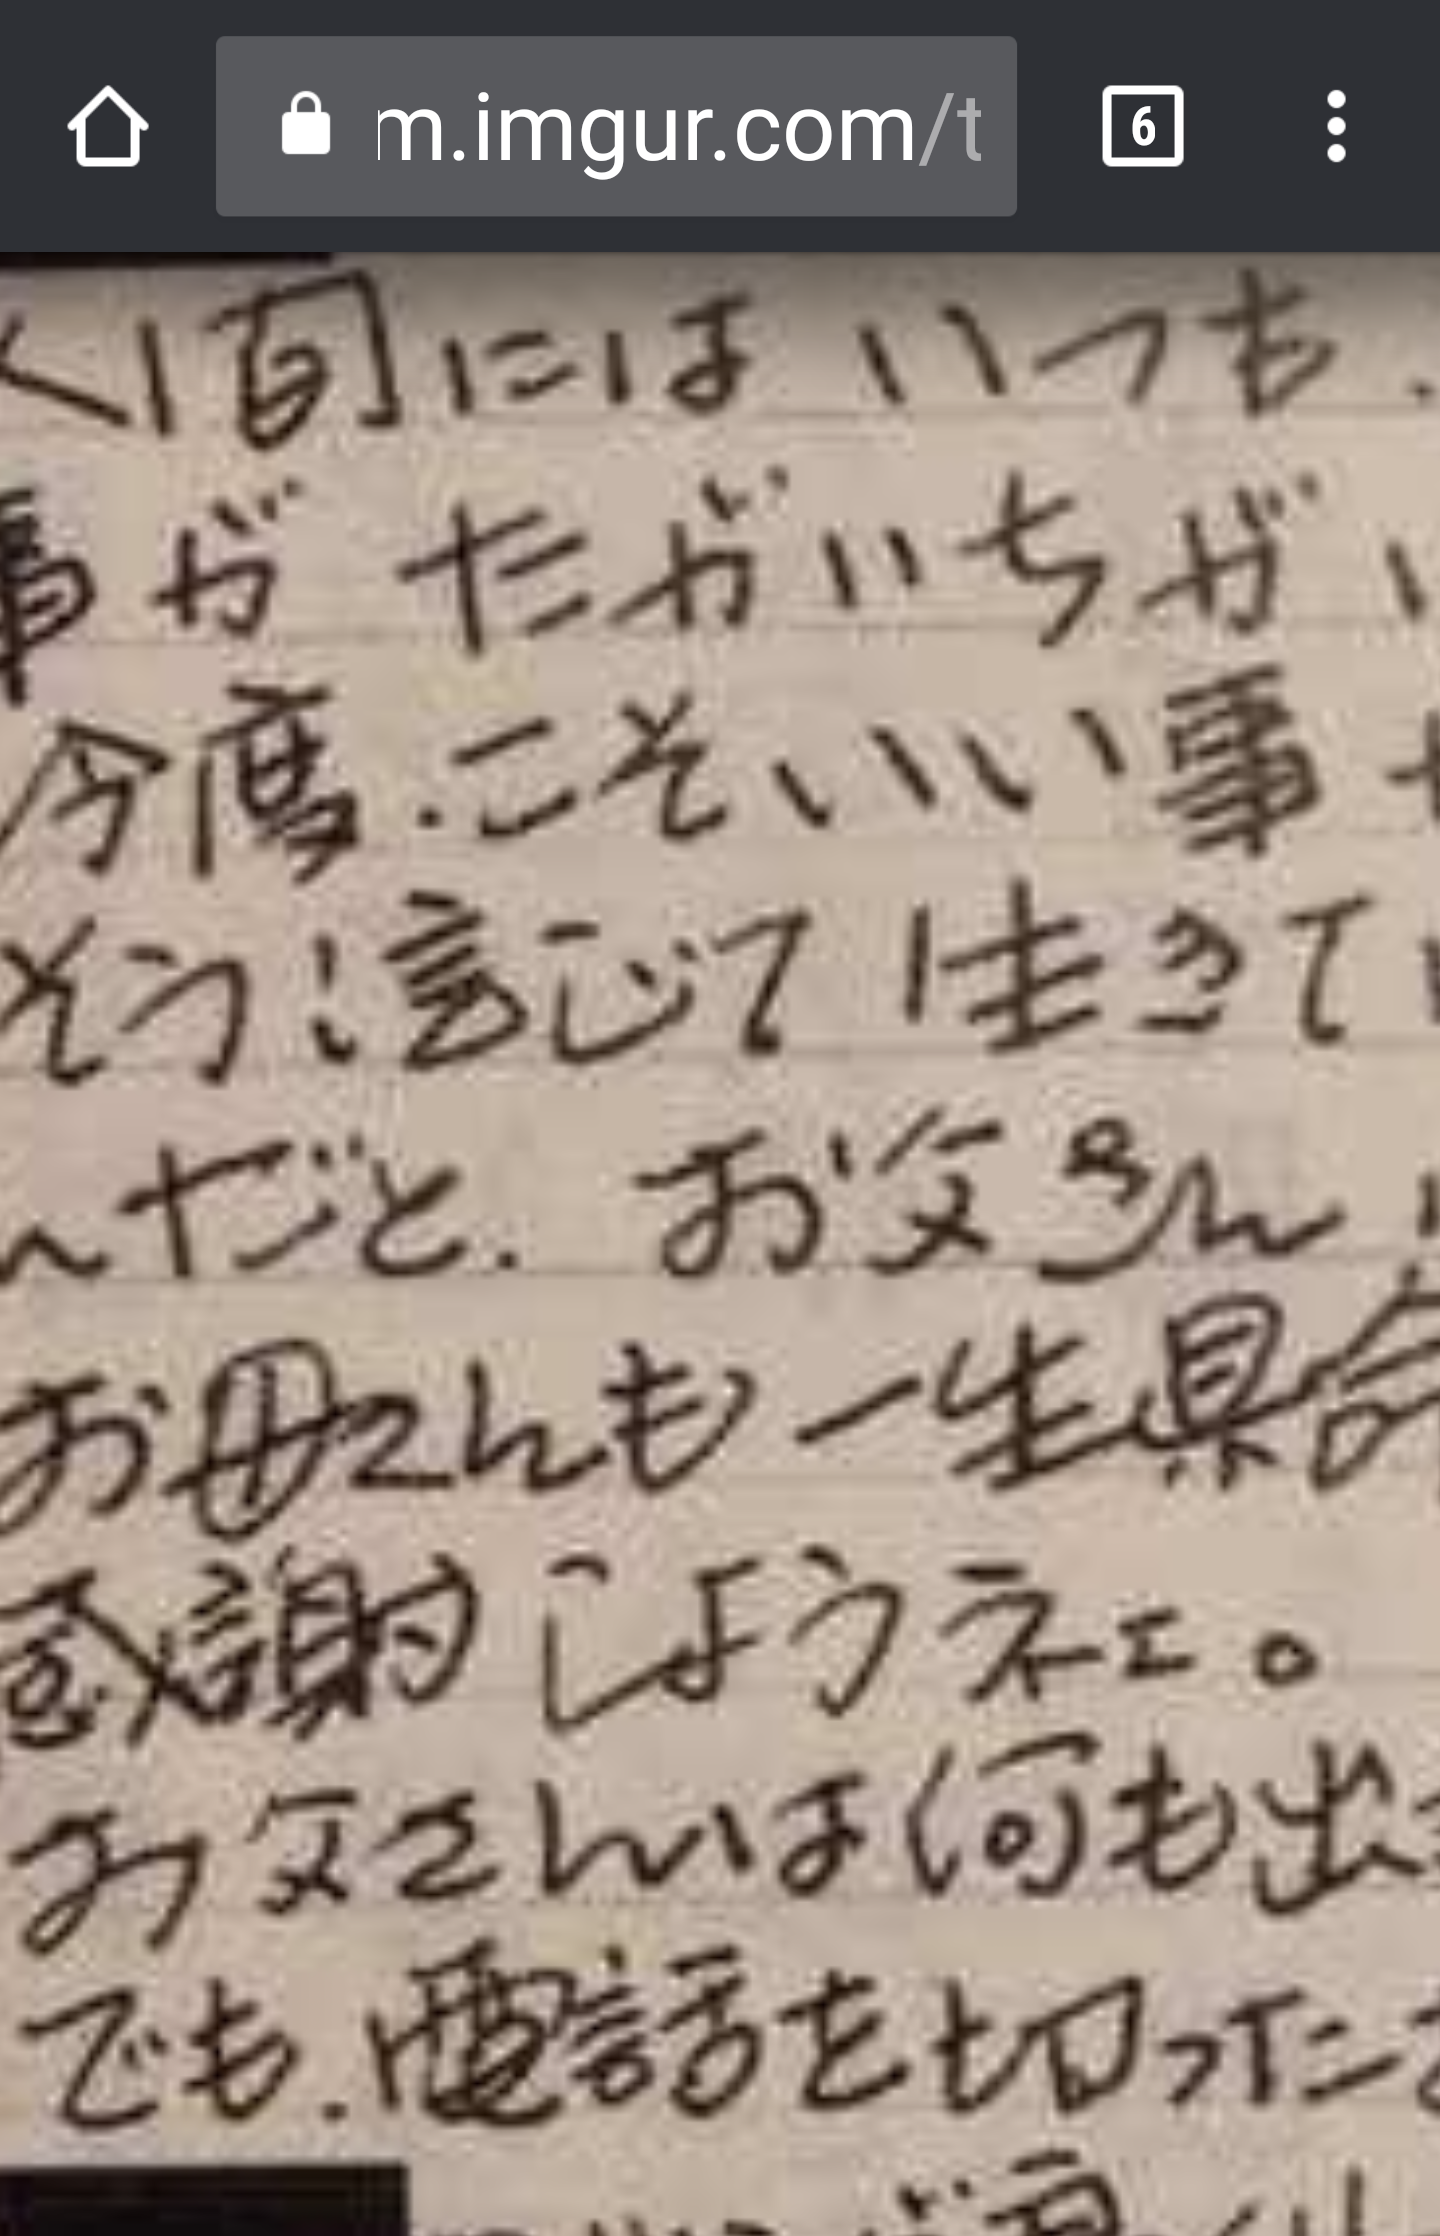 m.imgur.com/t
6
人間にはいつも.
事がたがいちがい
今度.こそいい事
そう信じて生きてい
んだと. お父さん
お母さんも一生具命
感謝しようネェ。
お父さんは何も出
でも.電話を切った